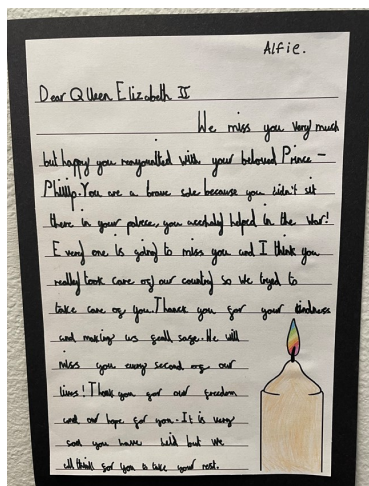 Alfie.
Dear Queen Elizabeth II
We miss you very much
but happy you rengunited with your beloved Prince -
Phillip. You are a brave sole because you didn't sit
there in your palece, you acchaly helped in the War!
Every one is going to miss you and I think you
really took care of our country so we tryed to
take care of you. Thanck you for your kindness
and making us feall safe. We will
miss you every second of our
lives! Thank you for our freedom
and our hope for you. It is very
sad you have but we
all think for you to take your rest.